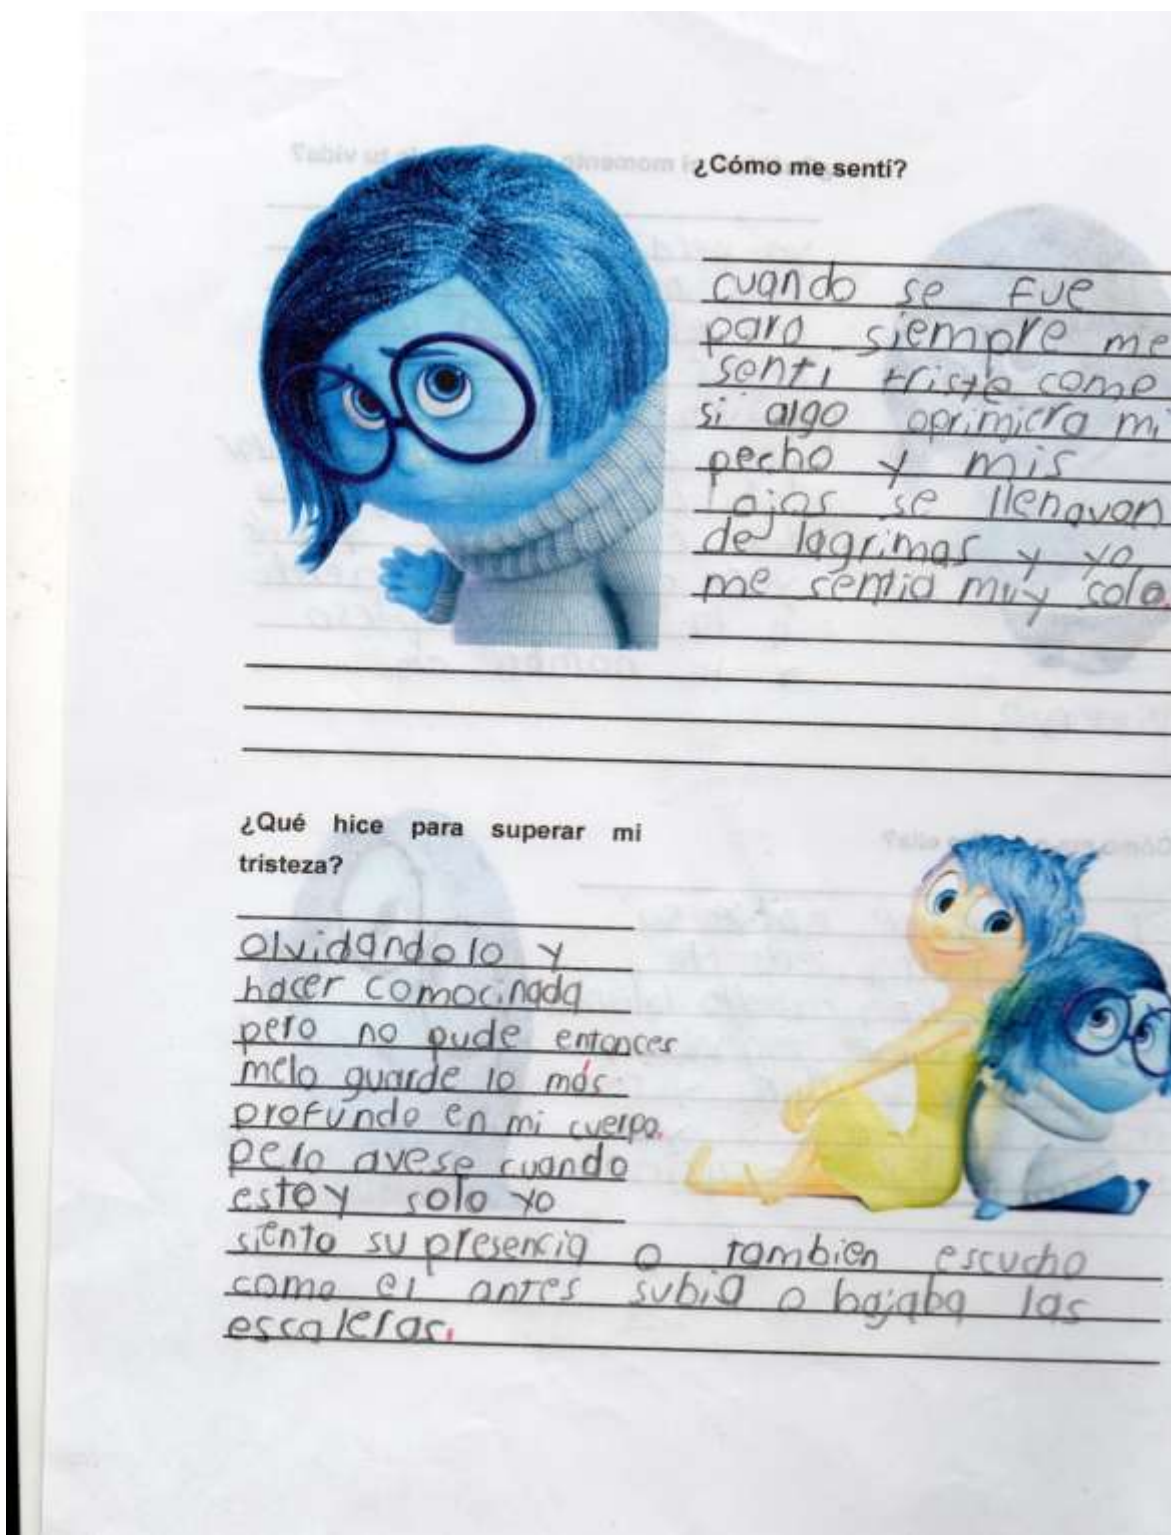 ¿Cómo me sentí?
cuando se fue
para siempre me
senti triste come
si algo oprimiera mi
pecho y mis
ojos se llenavan
de lagrimas y yo
me sentia muy solo.
¿Qué hice para superar mi
tristeza?
olvidandolo y
hacer comocinada
pero no pude entonces
melo guarde lo más
profundo en mi cuerpo.
pero avese cuando
estoy solo yo
siento su presencia o tambien escucho
como el antes subia o bajaba las
escaleras.